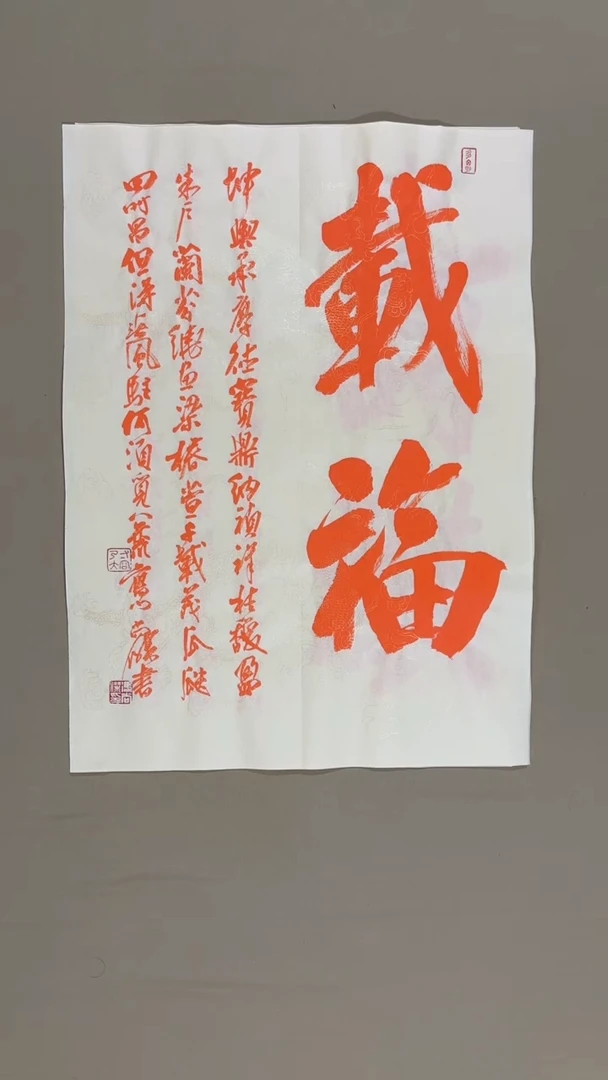 載福
坤輿承厚德寶鼎納禎祥桂馥盈
朱户蘭芬繞画梁椿萱千載茂瓜瓞
四时昌但得清風駐何須覓八荒書